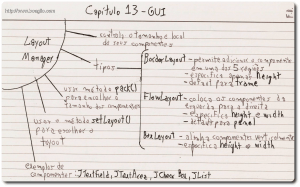 Capítulo 13 - GUI
controla o tamanho e local
de seus componentes
Layout
Manager
tipos
BorderLayout
- permite adicionar a componente
em uma das 5 regiões
- especifica apenas height
- default para frame
use o método pack()
para encolher o
tamanho dos componentes
FlowLayout
- coloca os componentes da
esquerda para a direita
- especifica height e width
- default para panel
use o método setLayout()
para escolher o
layout
BoxLayout
- alinha componentes verticalmente
- especifica height e width
exemplos de
componentes: JTextField, JTextArea, JCheck Box, JList